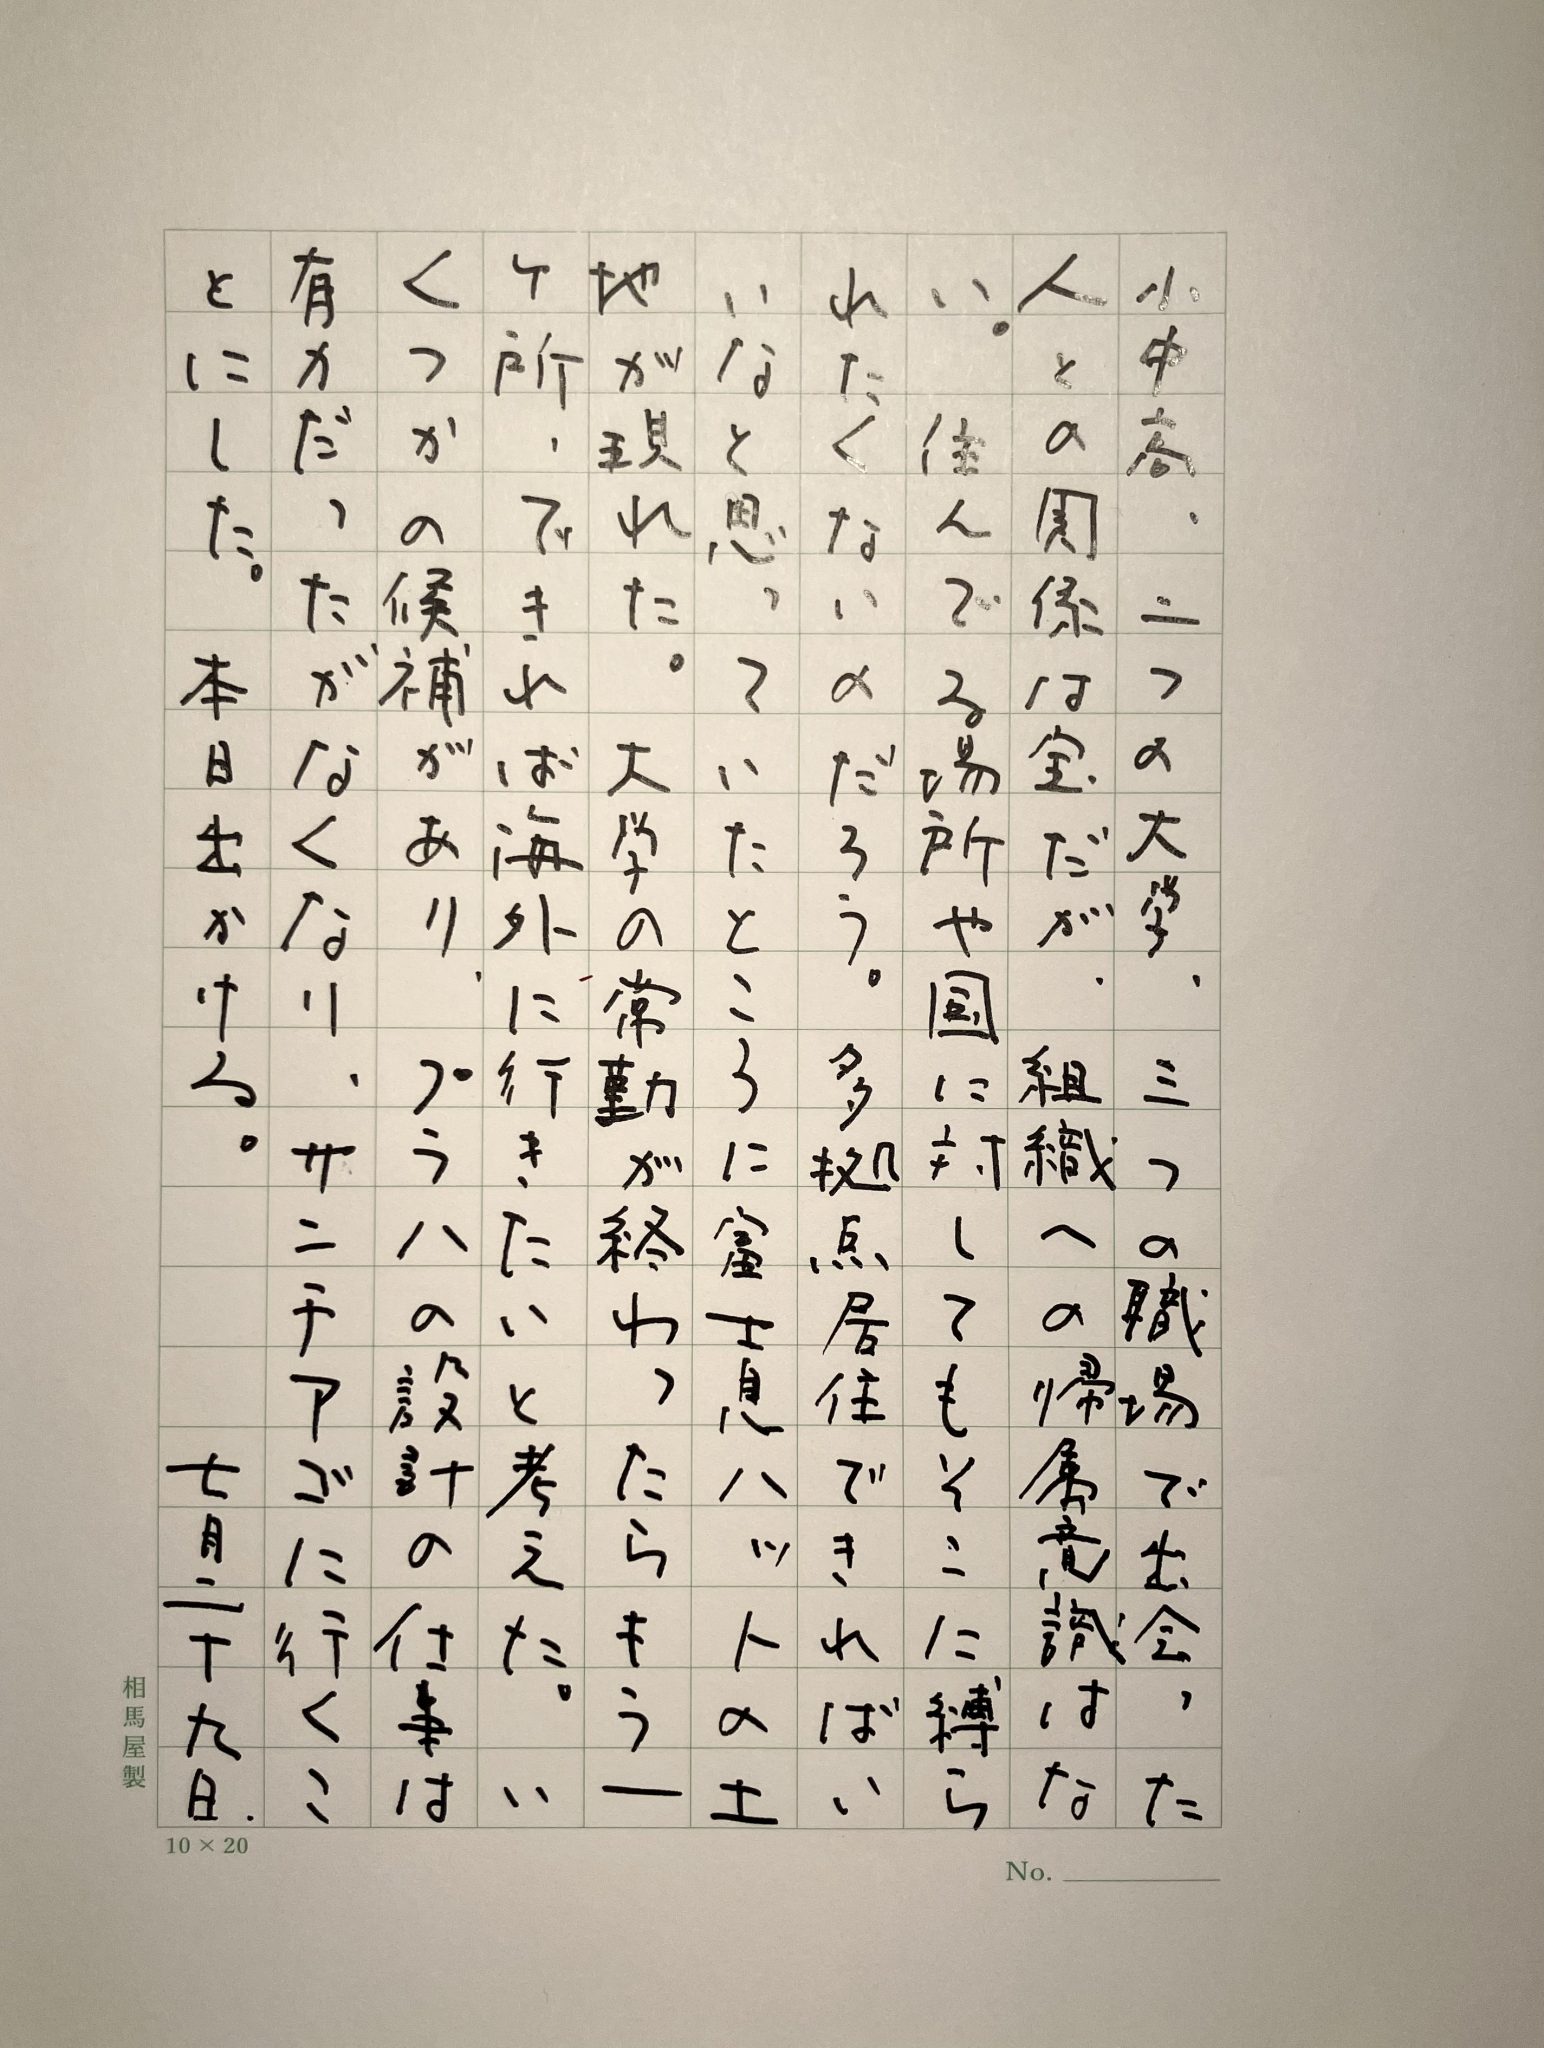 小中高、二つの大学、三つの職場で出会った
人との関係は宝だが、組織への帰属意識はな
い。住んでる場所や国に対してもそこに縛ら
れたくないのだろう。多拠点居住できればい
いなと思っていたところに富士息ハットの土
地が現れた。大学の常勤が終わったらもう一
ケ所、できれば海外に行きたいと考えた。い
くつかの候補があり、プラハの設計の仕事は
有力だったがなくなり、サンチアゴに行くこ
とにした。本日出かける。七月二十九日.
相馬屋製
10×20
No.